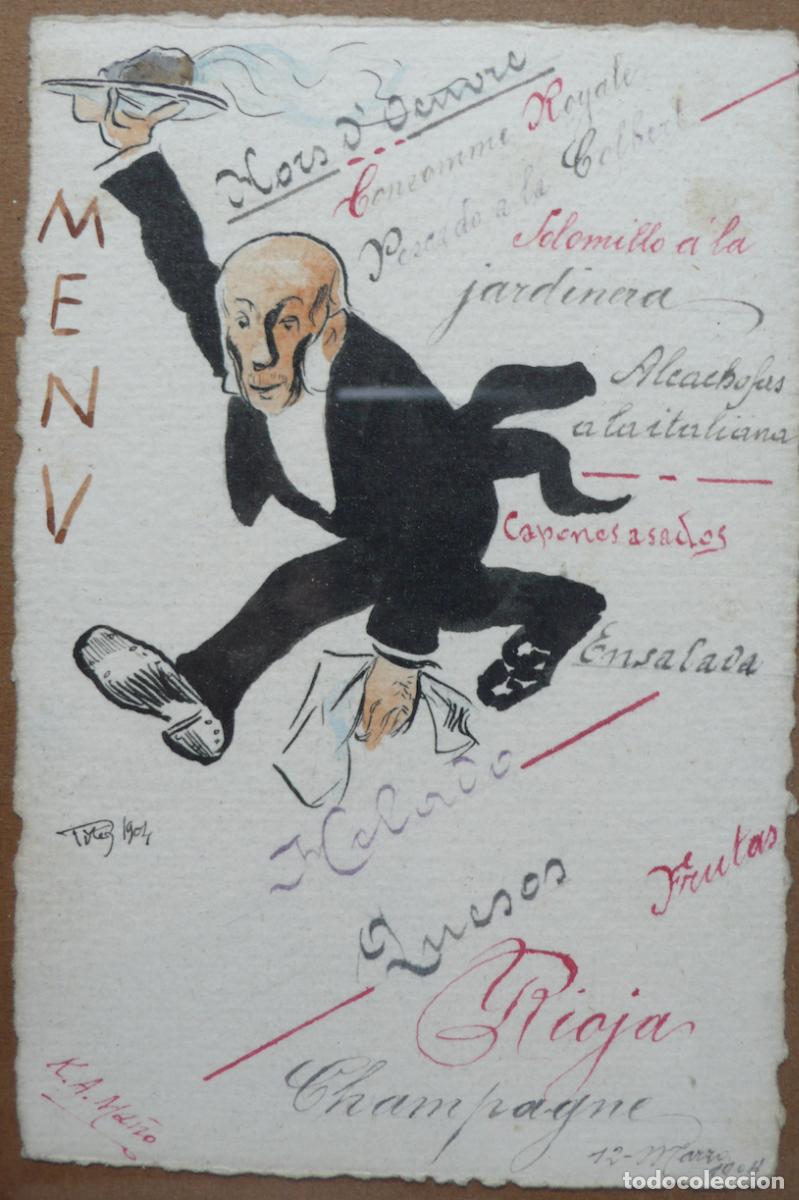 MENV
Hors d'Oeuvre
Consomme Royale
Pescado a la Colbert
Solomillo á la
jardinera
Alcachofas
a la italiana
Capones asados
Ensalada
Helado
Quesos
Frutas
Rioja
Champagne
1904
K.A. Maño
12-Marzo
1904
todocoleccion